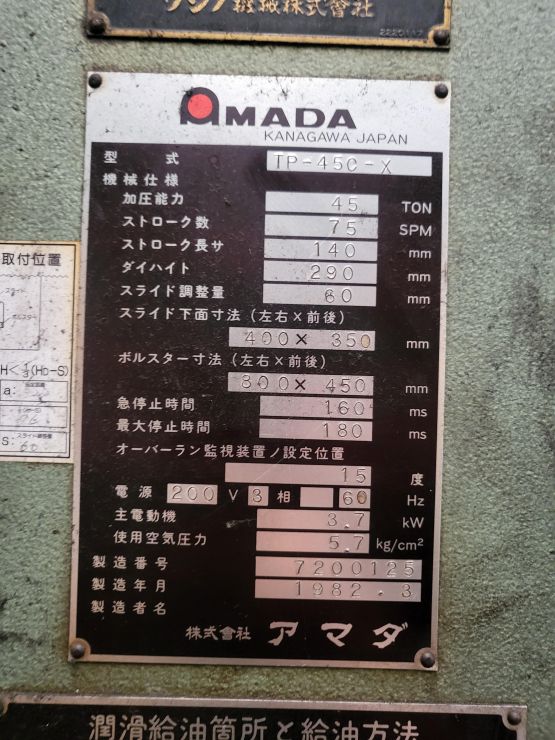 ワシノ機械株式會社
2220117
AMADA
KANAGAWA JAPAN
型 式 TP-45C-X
機械仕様
加圧能力 45 TON
ストローク数 75 SPM
ストローク長サ 140 mm
ダイハイト 290 mm
スライド調整量 60 mm
スライド下面寸法 (左右×前後)
400× 350 mm
ボルスター寸法 (左右×前後)
800× 450 mm
急停止時間 160 ms
最大停止時間 180 ms
オーバーラン監視装置ノ設定位置
15 度
電源 200 V 3 相 60 Hz
主電動機 3.7 kW
使用空気圧力 5.7 kg/cm²
製造番号 7200125
製造年月 1982.3
製造者名
株式會社 アマダ
取付位置
スライド
ボルスター
H<½(HD-S)
a:
S: 60
潤滑給油箇所と給油方法